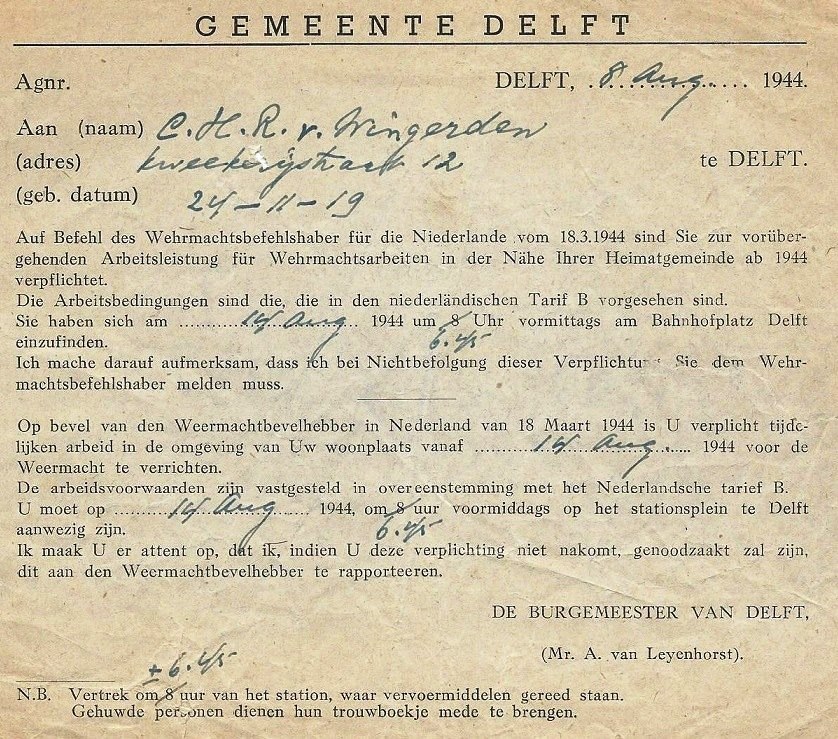 GEMEENTE DELFT
Agnr. DELFT, 8 Aug. 1944.
Aan (naam) C. H. R. v. Wingerden
(adres) Kweekerijstraat 12 te DELFT.
(geb. datum) 24-11-19
Auf Befehl des Wehrmachtsbefehlshaber für die Niederlande vom 18.3.1944 sind Sie zur vorüber-
gehenden Arbeitsleistung für Wehrmachtsarbeiten in der Nähe Ihrer Heimatgemeinde ab 1944
verpflichtet.
Die Arbeitsbedingungen sind die, die in den niederländischen Tarif B vorgesehen sind.
Sie haben sich am 14 Aug 1944 um 8 Uhr vormittags am Bahnhofplatz Delft
einzufinden. 6.45
Ich mache darauf aufmerksam, dass ich bei Nichtbefolgung dieser Verpflichtung Sie dem Wehr-
machtsbefehlshaber melden muss.
Op bevel van den Weermachtbevelhebber in Nederland van 18 Maart 1944 is U verplicht tijde-
lijken arbeid in de omgeving van Uw woonplaats vanaf 14 Aug. 1944 voor de
Weermacht te verrichten.
De arbeidsvoorwaarden zijn vastgesteld in overeenstemming met het Nederlandsche tarief B.
U moet op 14 Aug 1944, om 8 uur voormiddags op het stationsplein te Delft
aanwezig zijn. 6.45
Ik maak U er attent op, dat ik, indien U deze verplichting niet nakomt, genoodzaakt zal zijn,
dit aan den Weermachtbevelhebber te rapporteeren.
DE BURGEMEESTER VAN DELFT,
(Mr. A. van Leyenhorst).
± 6.45
N.B. Vertrek om 8 uur van het station, waar vervoermiddelen gereed staan.
Gehuwde personen dienen hun trouwboekje mede te brengen.